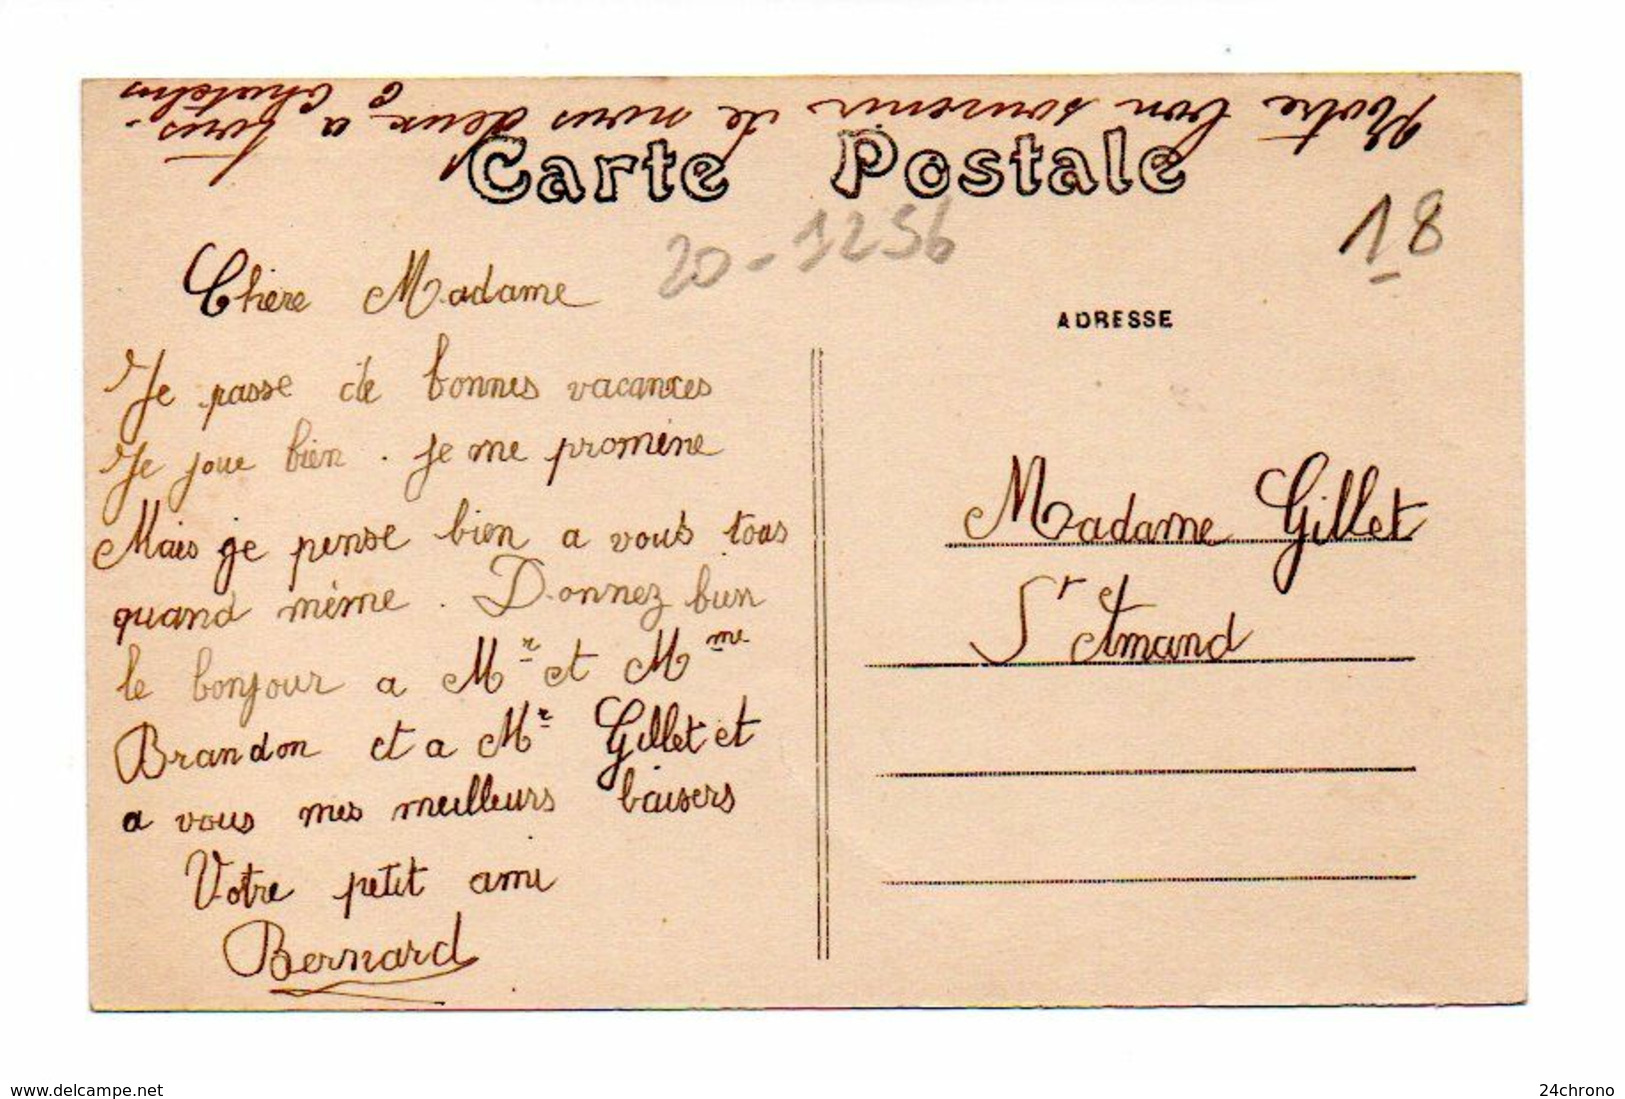 Notre bon souvenir de nous deux a tous.
Chatelus
Carte Postale
20-1256
18
Chère Madame
Je passe de bonnes vacances
Je joue bien. Je me promène
Mais je pense bien a vous tous
quand même. Donnez bien
le bonjour a Mr et Mme
Brandon et a Mr Gillet et
a vous mes meilleurs baisers
Votre petit ami
Bernard
ADRESSE
Madame Gillet
St Amand
www.delcampe.net
24chrono